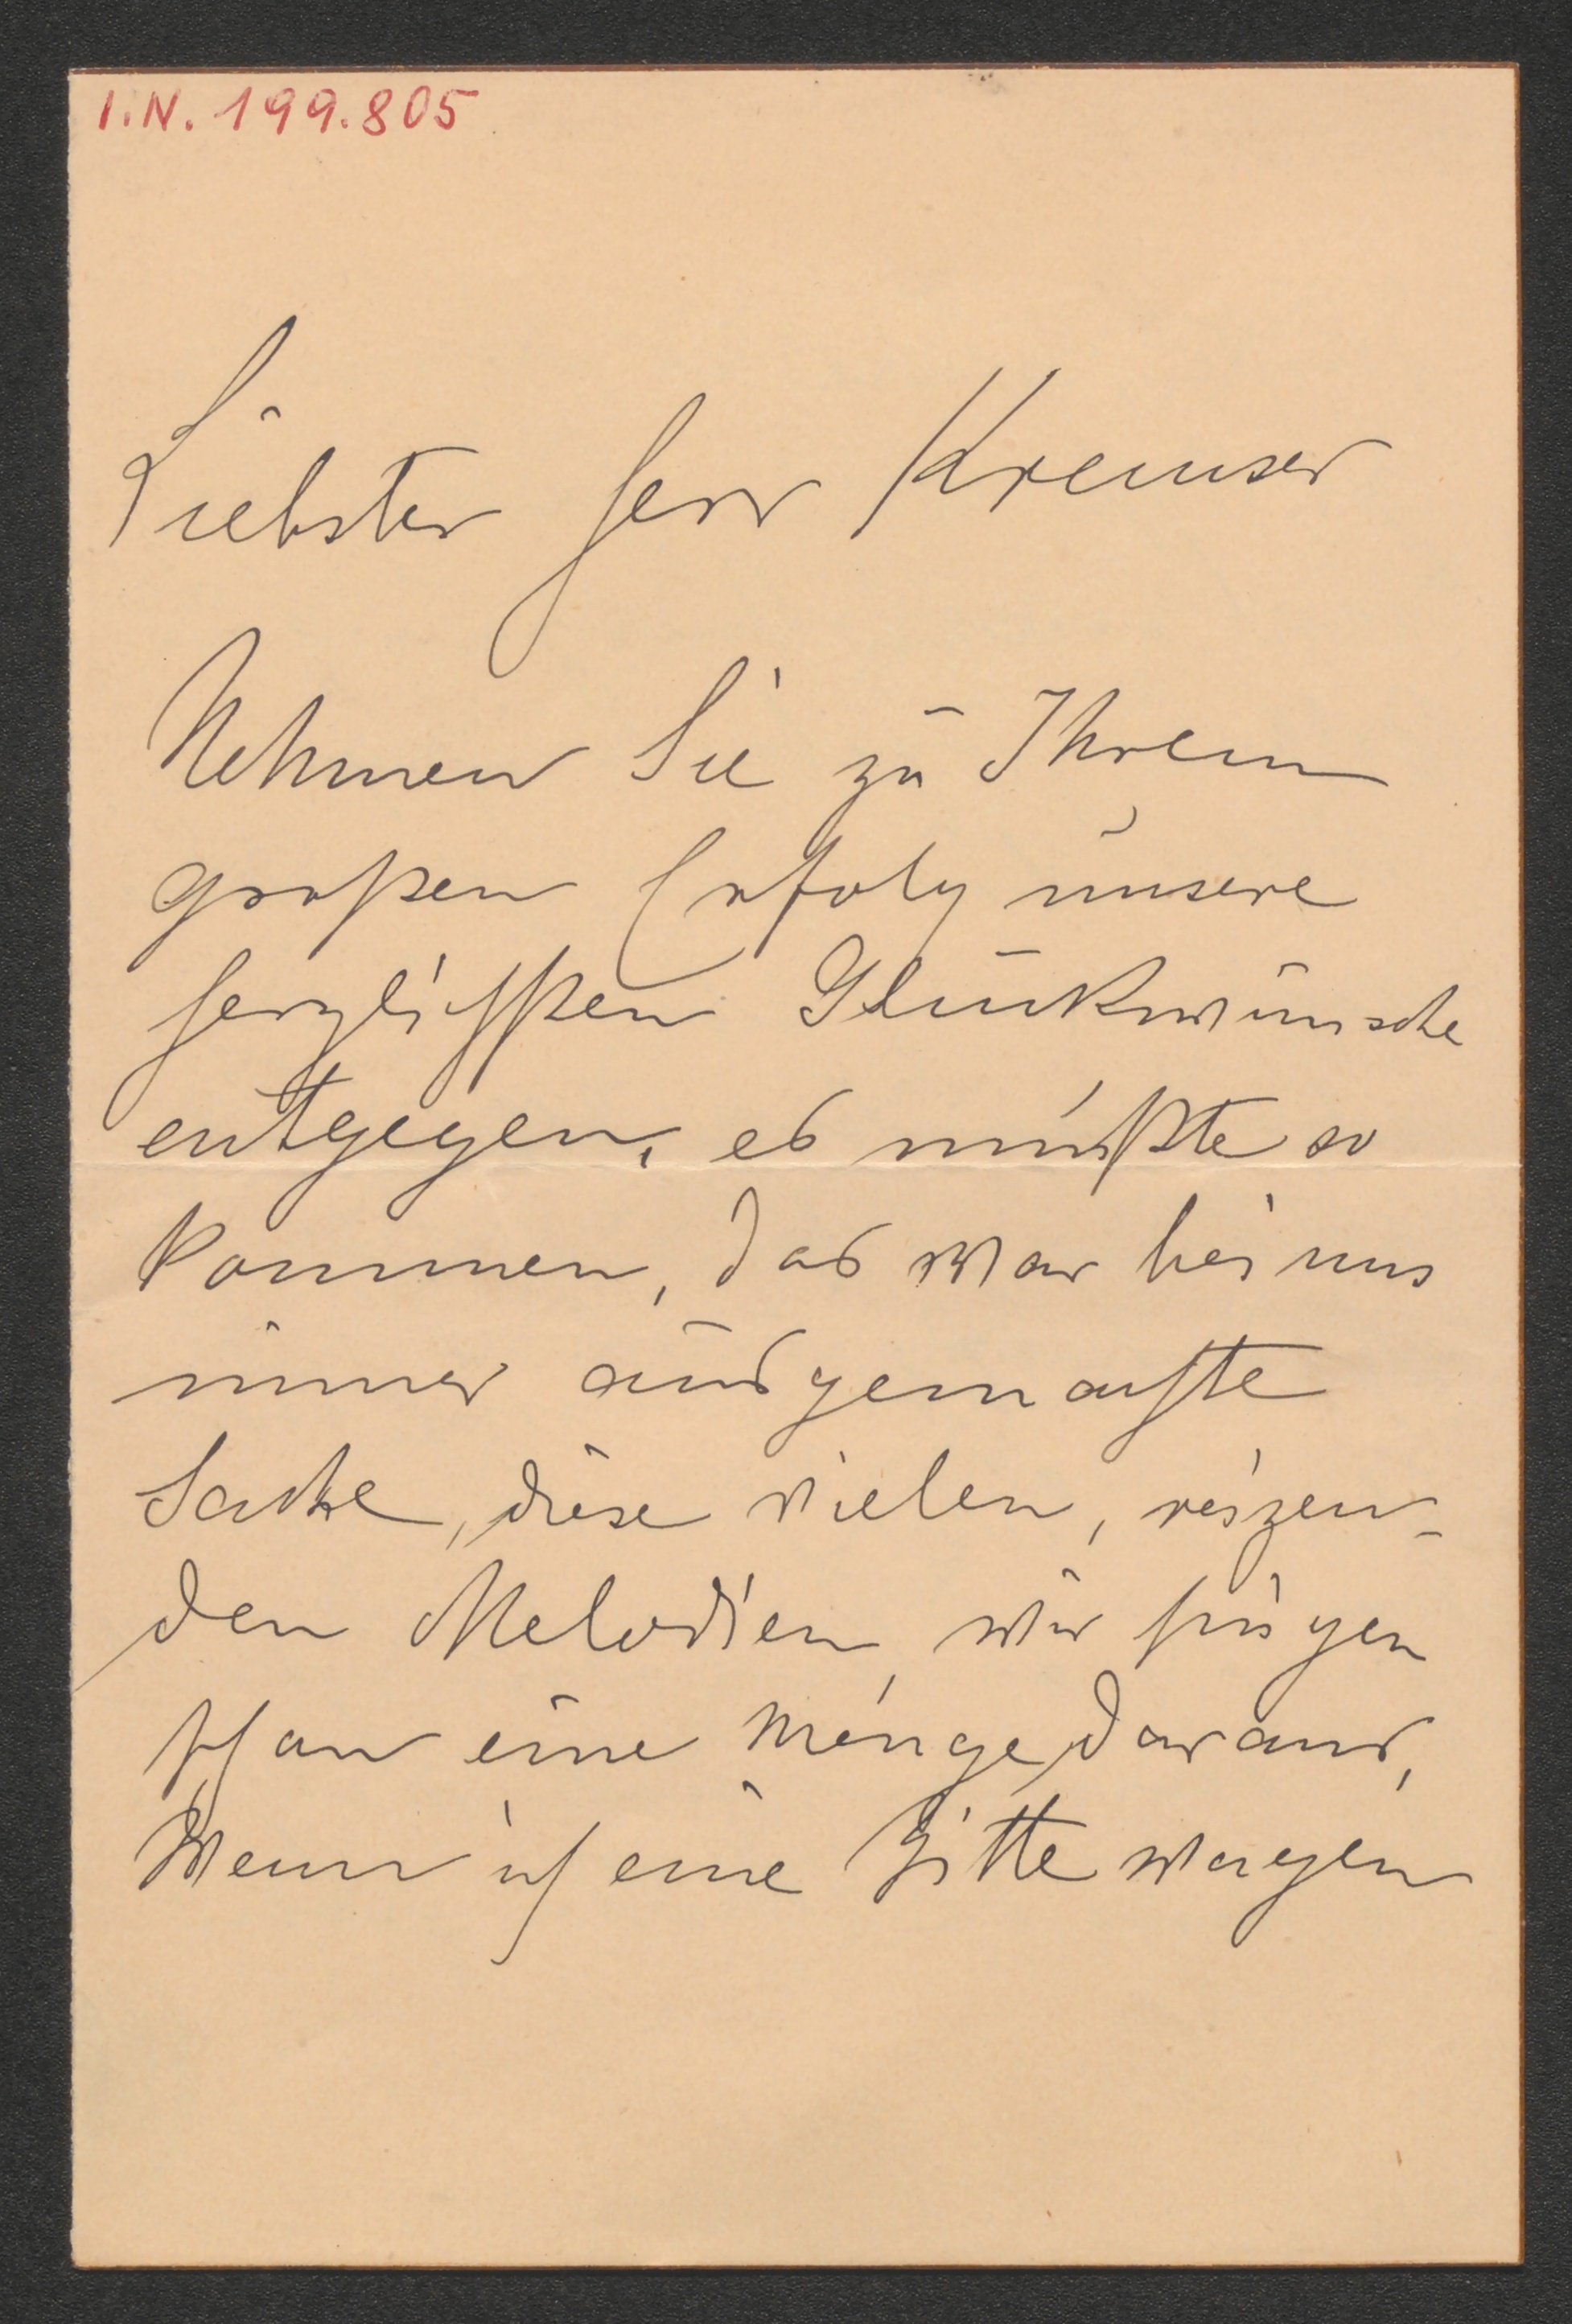 I.N. 199.805
Liebster Herr Kremser
Nehmen Sie zu Ihrem
großen Erfolg unsere
herzlichsten Glückwünsche
entgegen, es mußte so
kommen, das war bei uns
immer ausgemachte
Sache, diese vielen, reizen-
den Melodien, wir singen
schon eine Menge daraus,
Wenn ich eine Bitte wagen